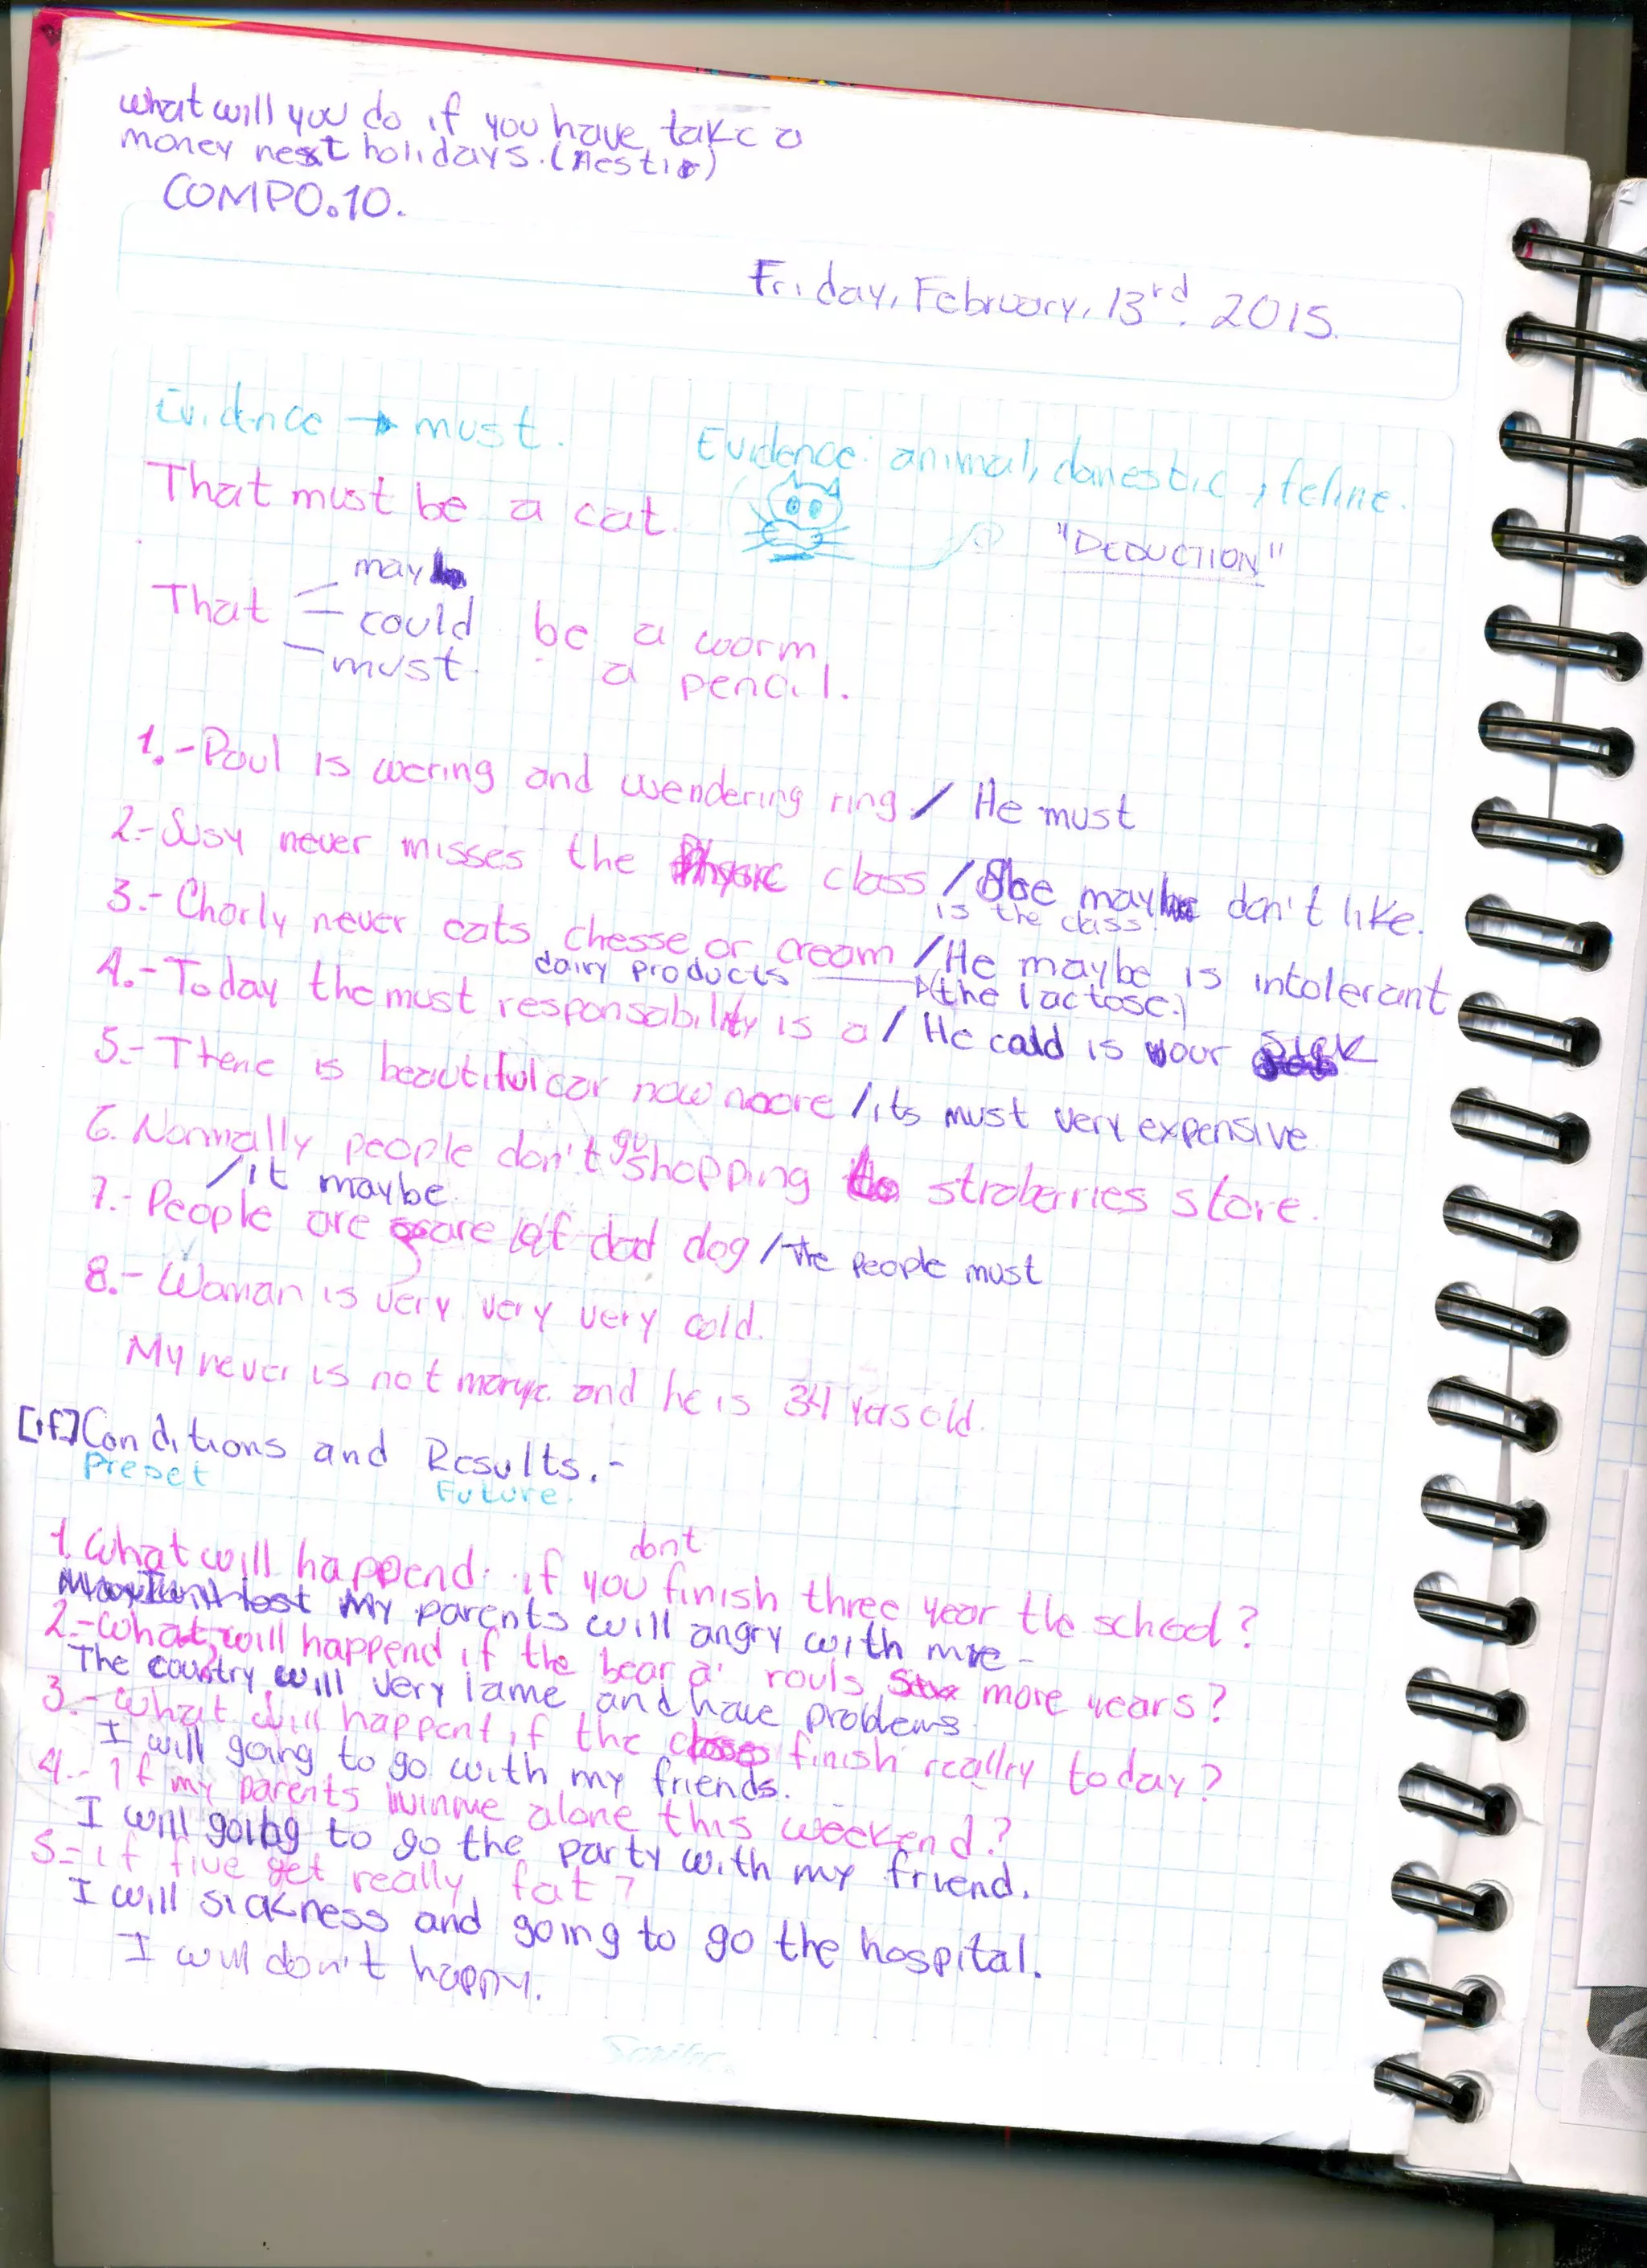 what will you do if you have take a
money next holidays.
COMPO.10.
Friday, February, 13rd. 2015.
Evidnce → must.
Evidence: animal, domestic, feline.
That must be a cat.
"DEDUCTION"
may
That could be a worm
must. a pencil.
1.-Paul is wering and wendering ring / He must
2.-Susy never misses the class / She may don't like.
is the class.
3.-Charly never eats chesse or cream / He maybe is intolerant
dairy products (the lactose.)
4.-Today the must responsability is a / He could is your sick
5.-There is beautiful car now noore / its must very expensive
6. Normally people don't go shopping to stroberries store.
/it maybe.
7.-People are scare of dad dog / the people must
8.-Woman is very very very cold.
My never is not and he is 34 years old.
[if] Conditions and Results.-
Preset Future.
dont
1. What will happend if you finish three year the school?
My parents will angry with me-
2.-What will happend if the bear a' rouls more years?
The country will very lame and have problems
3.-What will happent if the class finish reallry today?
I will going to go with my friends.
4.-If my parents alone this weekend?
I will going to go the party with my friend.
5=if five get really fat?
I will sickness and going to go the hospital.
I will don't happy.
Scribe